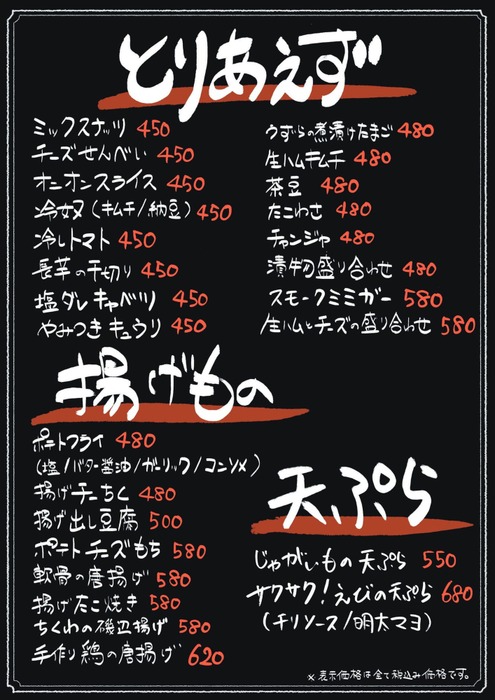 とりあえず
ミックスナッツ 450
チーズせんべい 450
オニオンスライス 450
冷奴(キムチ/納豆) 450
冷しトマト 450
長芋の千切り 450
塩ダレキャベツ 450
やみつきキュウリ 450
うずらの煮漬けたまご 480
生ハムキムチ 480
茶豆 480
たこわさ 480
チャンジャ 480
漬物盛り合わせ 480
スモークミミガー 580
生ハムとチーズの盛り合わせ 580
揚げもの
ポテトフライ 480
(塩/バター醤油/ガーリック/コンソメ)
揚げチーちく 480
揚げ出し豆腐 500
ポテトチーズもち 580
軟骨の唐揚げ 580
揚げたこ焼き 580
ちくわの磯辺揚げ 580
手作り鶏の唐揚げ 620
天ぷら
じゃがいもの天ぷら 550
サクサク!えびの天ぷら 680
(チリソース/明太マヨ)
※表示価格は全て税込み価格です。